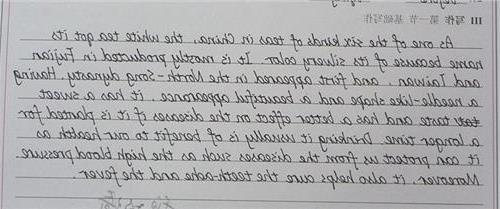 III 写作 第一节 基础写作
As one of the six kinds of teas in China, the white tea got its
name because of its silvery color. It is mostly produced in Fujian
and Taiwan, and first appeared in the North-Song dynasty. Having
a needle-like shape and a beautiful appearance, it has a sweet
taste and has a better effect on the diseases if it is planted for
a longer time. Drinking it usually is of benefit to our health as
it can protect us from the diseases such as the high blood pressure.
Moreover, it also helps cure the teeth-ache and the fever.